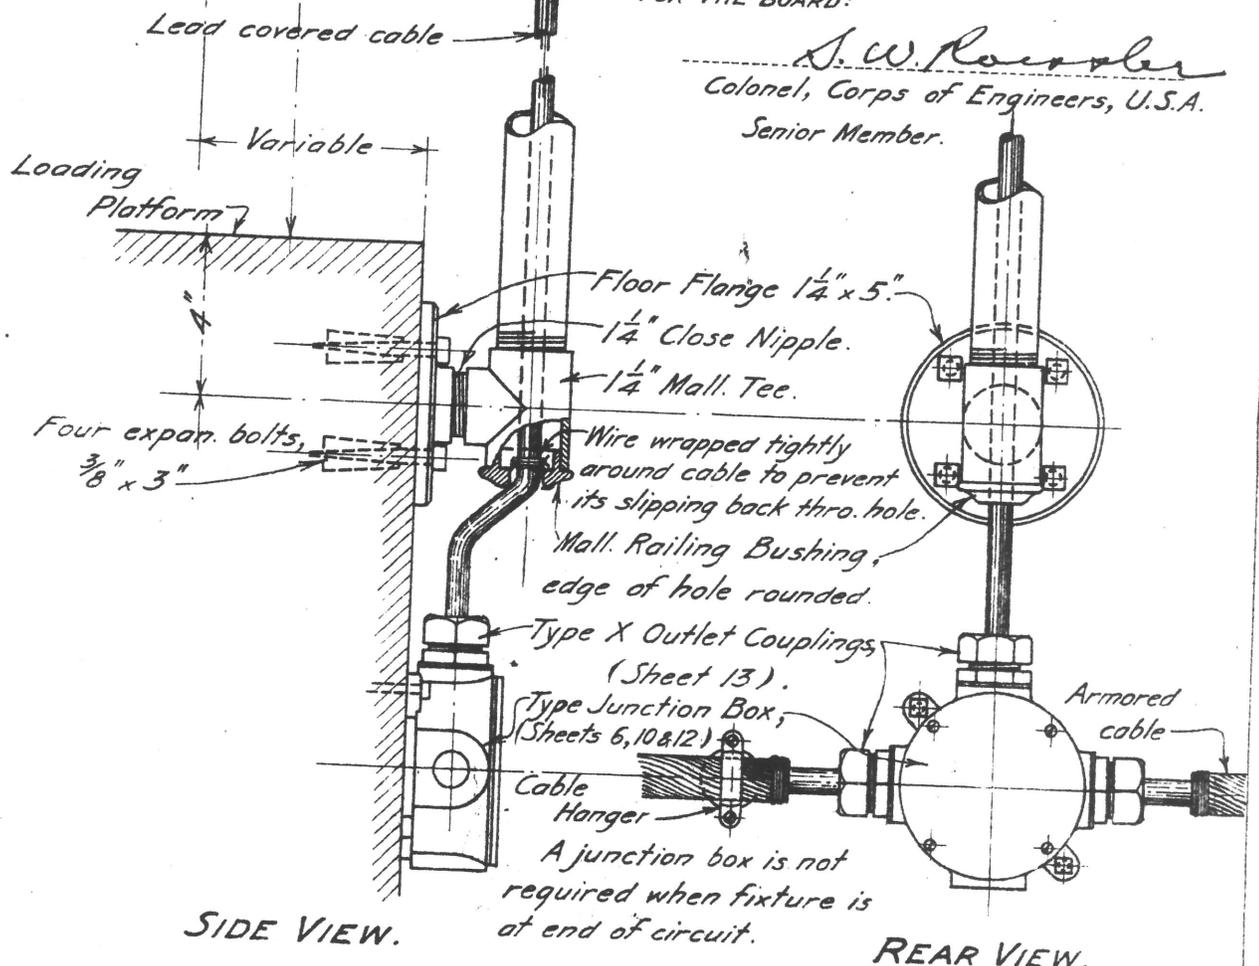 FOR THE BOARD:
Lead covered cable
S. W. Roessler
Colonel, Corps of Engineers, U.S.A.
Senior Member.
Variable
Loading
Platform
4"
Floor Flange 1¼" x 5".
1¼" Close Nipple.
1¼" Mall. Tee.
Four expan. bolts,
3/8" x 3"
Wire wrapped tightly
around cable to prevent
its slipping back thro. hole.
Mall. Railing Bushing,
edge of hole rounded.
Type X Outlet Couplings,
(Sheet 13).
Type Junction Box,
(Sheets 6, 10 & 12)
Armored
cable
Cable
Hanger
A junction box is not
required when fixture is
at end of circuit.
SIDE VIEW.
REAR VIEW.